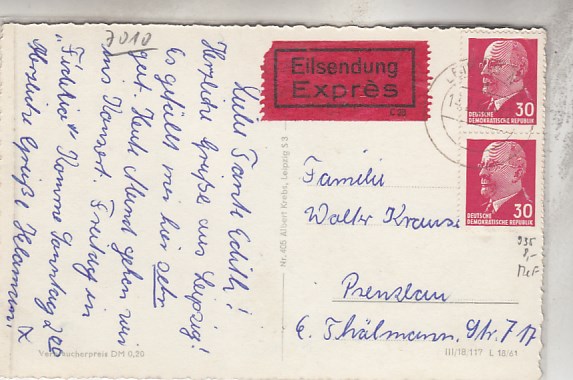 7010
Liebe Tante Edith!
Herzliche Grüße aus Leipzig!
Es gefällt mir hier sehr
gut. Heute Abend gehen wir
ins Konzert. Freitag in
"Fidelio". Komme Sonntag
Herzliche Grüße
Verbraucherpreis DM 0,20
Nr. 405 Albert Krebs, Leipzig S 3
Eilsendung
Exprès
30
DEUTSCHE
DEMOKRATISCHE REPUBLIK
30
DEUTSCHE
DEMOKRATISCHE REPUBLIK
Familie
Walter Krause
Prenzlau
E. Thälmann. Str. 7
935
8,-
MeF
III/18/117 L 18/61